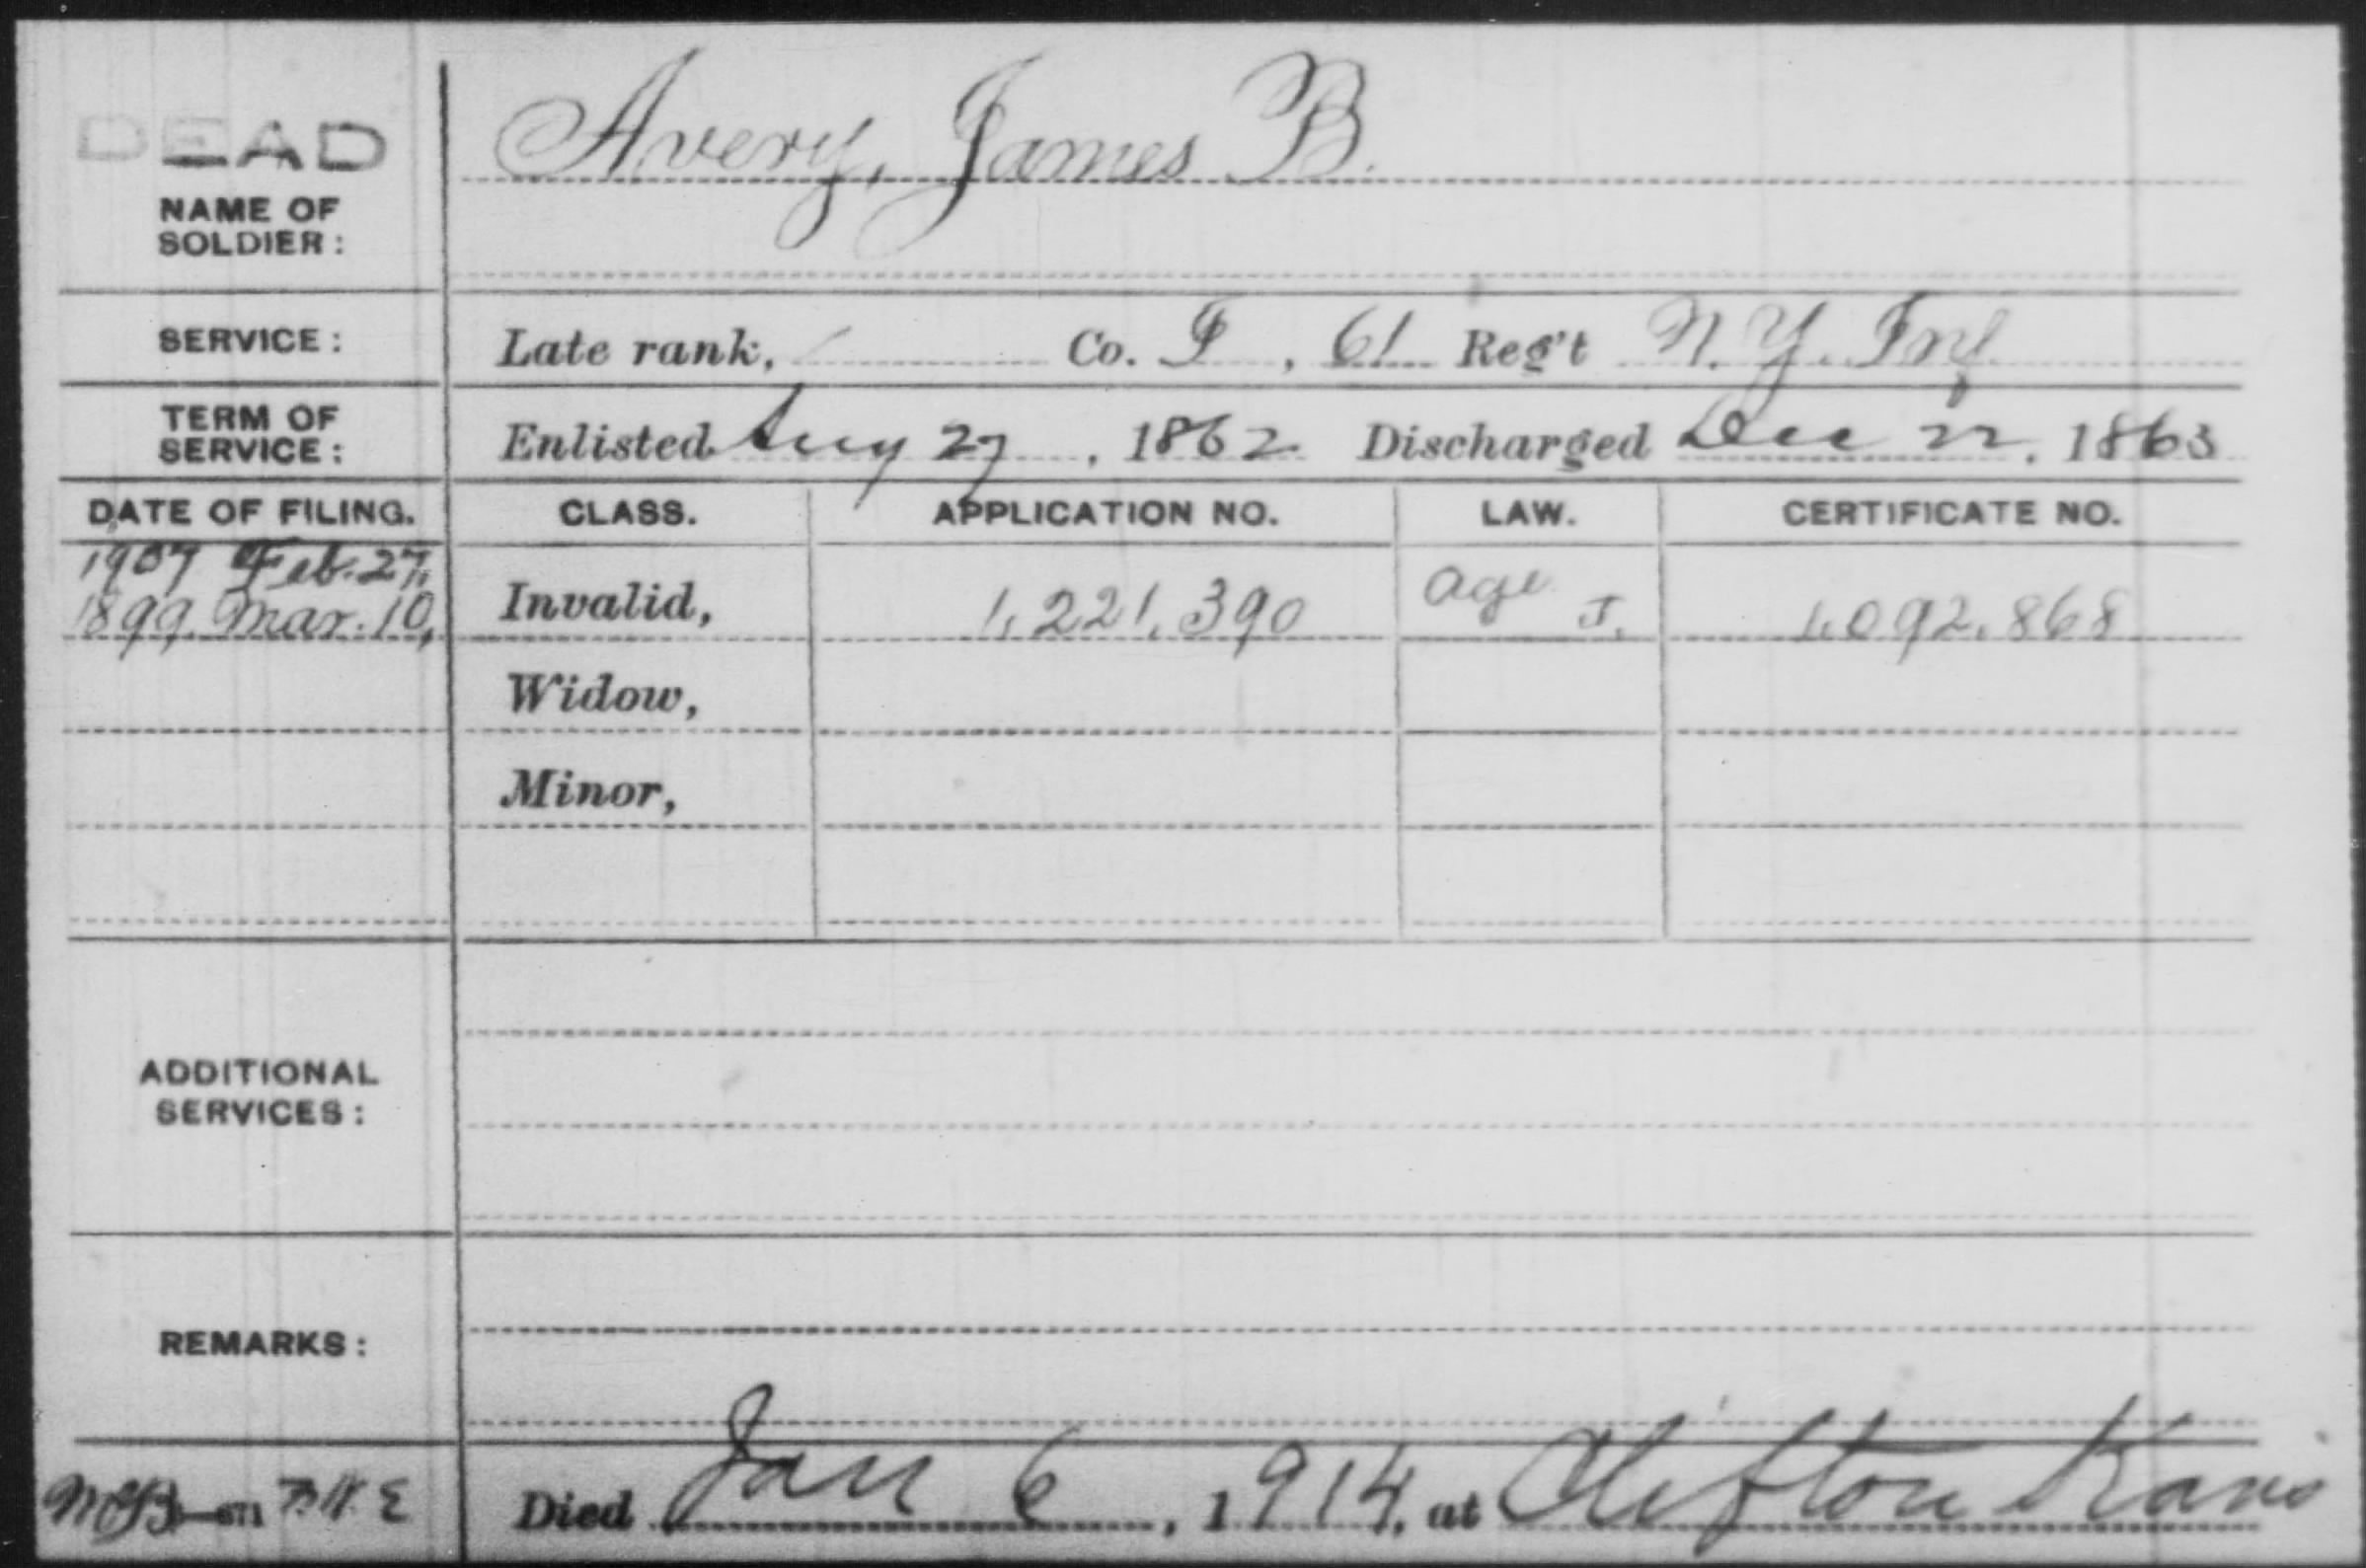 DEAD
NAME OF
SOLDIER:
Avery, James B.
SERVICE:
Late rank, Co. I, 61 Reg't N.Y. Inf
TERM OF
SERVICE:
Enlisted Aug 27, 1862 Discharged Dec 22, 1863
DATE OF FILING. CLASS. APPLICATION NO. LAW. CERTIFICATE NO.
1907 Feb. 27,
1899. Mar. 10, Invalid, 1,221,390 Age J. 1,092,868
Widow,
Minor,
ADDITIONAL
SERVICES:
REMARKS:
Died Jan 6, 1914, at Clifton Kans